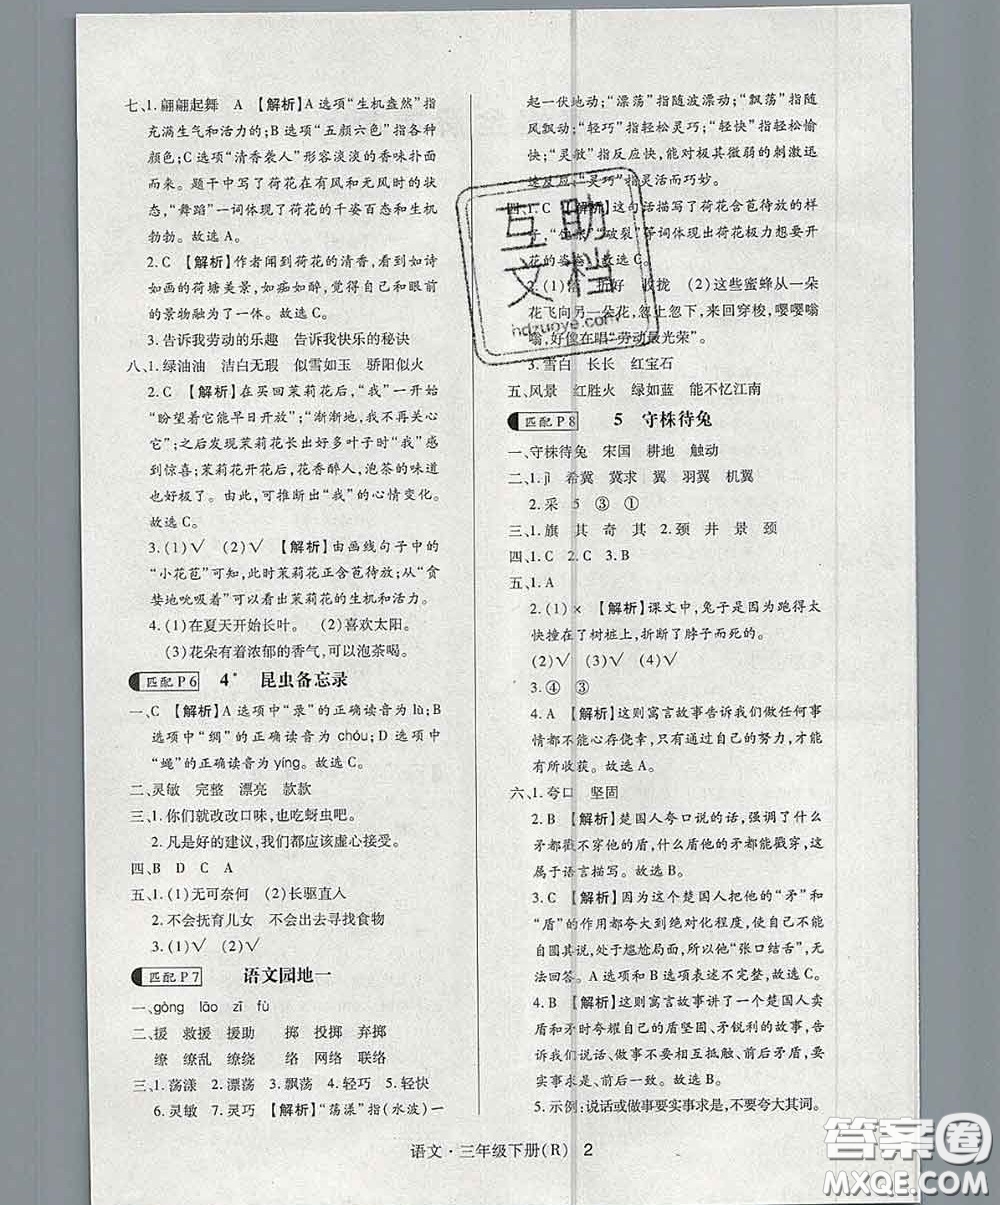 七、1.翩翩起舞 A 【解析】A选项“生机盎然”指
充满生气和活力的;B选项“五颜六色”指各种
颜色;C选项“清香袭人”形容淡淡的香味扑面
而来。题干中写了荷花在有风和无风时的状
态,“舞蹈”一词体现了荷花的千姿百态和生机
勃勃。故选A。
2.C 【解析】作者闻到荷花的清香,看到如诗
如画的荷塘美景,如痴如醉,可见是和眼前
的景物融为了一体。故选C。
3.告诉我劳动的乐趣 告诉我快乐的秘诀
八、1.绿油油 洁白无瑕 似雪如玉 骄阳似火
2.C 【解析】在买回茉莉花后,“我”一开始
“盼望着它能早日开放”;“渐渐地,我不再关心
它”;之后发现茉莉花长出好多叶子时“我”感
到惊喜;茉莉花开花后,花香醉人,泡茶的味道
也好极了。由此,可推断出“我”的心情变化。
故选C。
3.(1)√ (2)√ 【解析】由画线句子中的
“小花苞”可知,此时茉莉花正含苞待放;从“贪
婪地吮吸着”可以看出茉莉花的生机和活力。
4.(1)在夏天开始长叶。 (2)喜欢太阳。
(3)花朵有着浓郁的香气,可以泡茶喝。
匹配P6 4* 昆虫备忘录
一、C 【解析】A选项中“录”的正确读音为lù;B
选项中“绸”的正确读音为chóu;D选项中
“蝇”的正确读音为yíng。故选C。
二、灵敏 完整 漂亮 款款
三、1.你们就改改口味,也吃蚜虫吧。
2.凡是好的建议,我们都应该虚心接受。
四、B D C A
五、1.(1)无可奈何 (2)长驱直入
2.不会抚育儿女 不会出去寻找食物
3.(1)√ (2)√
匹配P7 语文园地一
一、gòng lāo zī fù
二、援 救援 援助 掷 投掷 弃掷
缭 缭乱 缭绕 络 网络 联络
三、1.荡漾 2.漂荡 3.飘荡 4.轻巧 5.轻快
6.灵敏 7.灵巧 【解析】“荡漾”指(水波)一
起一伏地动;“漂荡”指随波漂动;“飘荡”指随
风飘动;“轻巧”指轻松灵巧;“轻快”指轻松愉
快;“灵敏”指反应快,能对极其微弱的刺激迅
速反应;“灵巧”指灵活而巧妙。
四、1.C 【解析】这句话描写了荷花含苞待放的样
子,“饱胀”“破裂”等词体现出荷花极力想要开
放的姿态。故选C。
2.(1)恰 恰好 收拢 (2)这些蜜蜂从一朵
花飞向另一朵花,忽上忽下,来回穿梭,嘤嘤嗡
嗡,好像在唱“劳动最光荣”。
3.雪白 长长 红宝石
五、风景 红胜火 绿如蓝 能不忆江南
匹配P8 5 守株待兔
一、守株待兔 宋国 耕地 触动
二、1.jì 希冀 冀求 翼 羽翼 机翼
2.采 5 ③ ①
三、1.旗 其 奇 其 2.颈 井 景 颈
四、1.C 2.C 3.B
五、1.A
2.(1)× 【解析】课文中,兔子是因为跑得太
快撞在了树桩上,折断了脖子而死的。
(2)√ (3)√
3.④ ③
4.A 【解析】这则寓言故事告诉我们做任何事
情都不能心存侥幸,只有通过自己的努力,才能
有所收获。故选A。
六、1.夸口 坚固
2.B 【解析】楚国人夸口说的话,强调了什么
矛都戳不穿他的盾,什么盾他的矛都能戳穿,这
属于语言描写。故选B。
3.C 【解析】因为这个楚国人把他的“矛”和
“盾”的作用都夸大到绝对化程度,使自己不能
自圆其说,处于尴尬局面,所以他“张口结舌”,无
法回答。A选项和B选项与本题不符。故选C。
4.B 【解析】这则寓言故事讲了一个楚国人卖
盾和矛时夸耀自己的盾坚固、矛锐利的故事,告
诉我们说话、做事不要互相抵触、前后矛盾,要
实事求是、前后一致。故选B。
5.示例:说话或做事要实事求是,不要夸大其词。
语文·三年级下册(R) 2
互助
文档
hdzuoye.com
答案圈
MXQE.COM